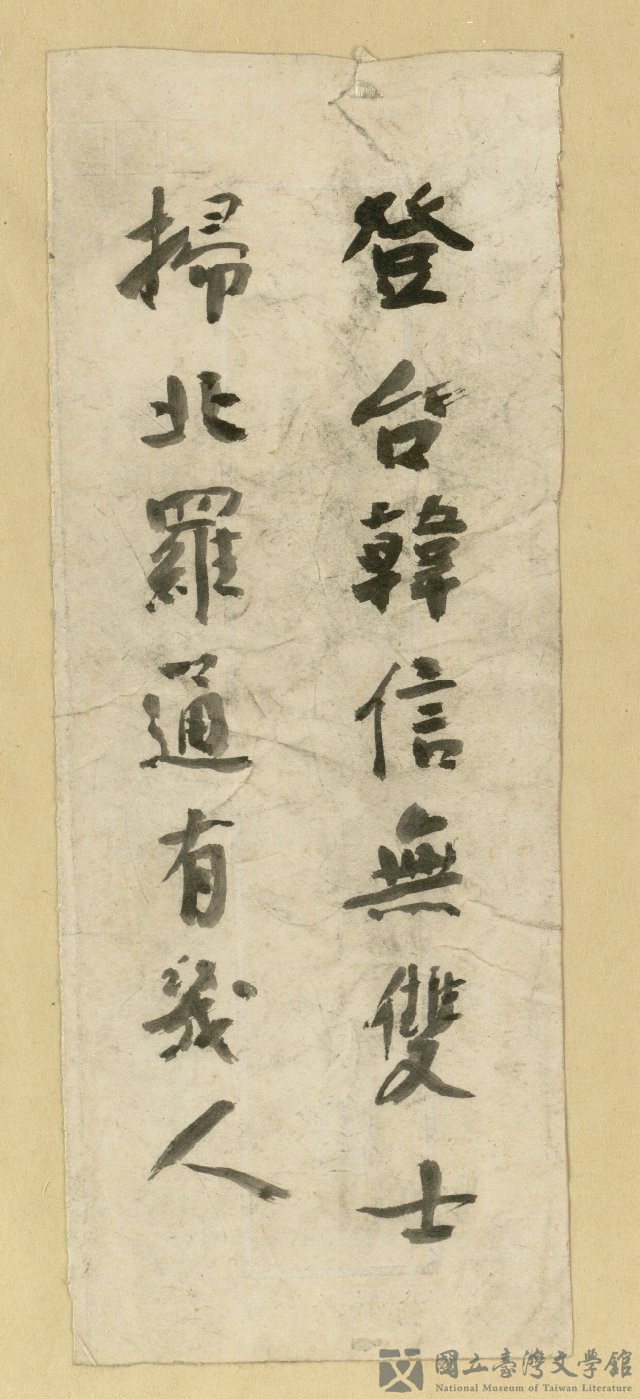 登台韓信無雙士
掃北羅通有幾人
國立臺灣文學館
National Museum of Taiwan Literature